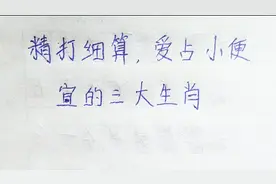 精打细算，爱占小便
宜的三大生肖